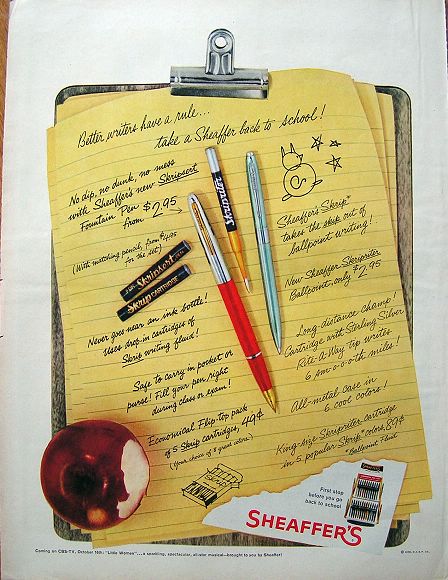 Better writers have a rule...
take a Sheaffer back to school!
No dip, no dunk, no mess
with Sheaffer's new Skripsert
Fountain Pen $2.95
from
(With matching pencil, from $4.95
for the set)
Skripsert
Skrip CARTRIDGE
Never goes near an ink bottle!
Uses drop-in cartridges of
Skrip writing fluid!
Safe to carry in pocket or
purse! Fill your pen right
during class or exam!
Economical Flip-top pack
of 5 Skrip cartridges, 49¢
(Your choice of 8 great colors)
Skrip
Skripriter
Sheaffer's Skrip*
takes the skip out of
ballpoint writing!
New Sheaffer Skripriter
Ballpoint, only $2.95
Long-distance champ!
Cartridge with Sterling Silver
Rite-A-Way tip writes
6 sm-o-o-o-th miles!
All-metal case in
6 cool colors!
King-size Skripriter cartridge
in 5 popular Skrip* colors, 89¢
*Ballpoint Fluid
First stop
before you go
back to school
SHEAFFER'S
Coming on CBS-TV, October 16th: "Little Women"... a sparkling, spectacular, all-star musical—brought to you by Sheaffer!